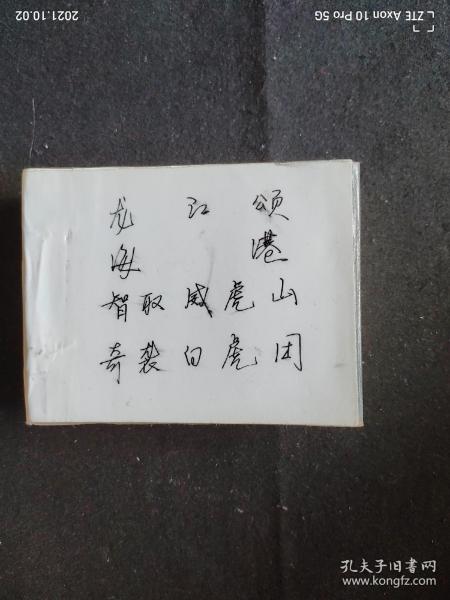 2021.10.02
ZTE Axon 10 Pro 5G
龙江颂
海港
智取威虎山
奇袭白虎团
孔夫子旧书网
www.kongfz.com